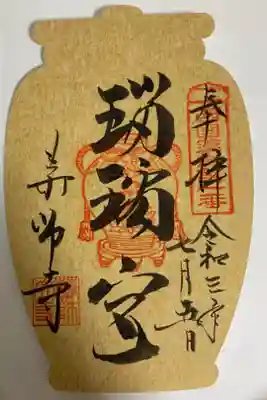 奉拝
令和三年
七月五日
瑠璃
薬師寺